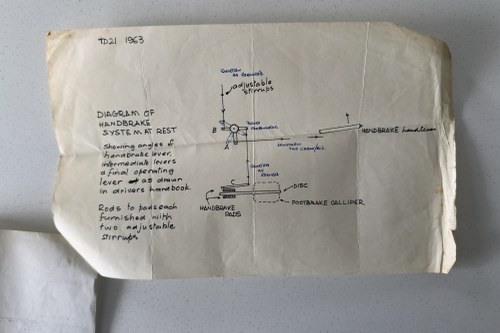 TD21 1963
adjustable
stirrups
DIAGRAM OF
HANDBRAKE
SYSTEM AT REST
Showing angles of
handbrake lever,
intermediate levers
& final operating
lever as drawn
in drivers handbook.
Rods to pads each
furnished with
two adjustable
stirrups
B
A
HANDBRAKE hand lever
C
DISC
HANDBRAKE
PADS
FOOTBRAKE CALLIPER